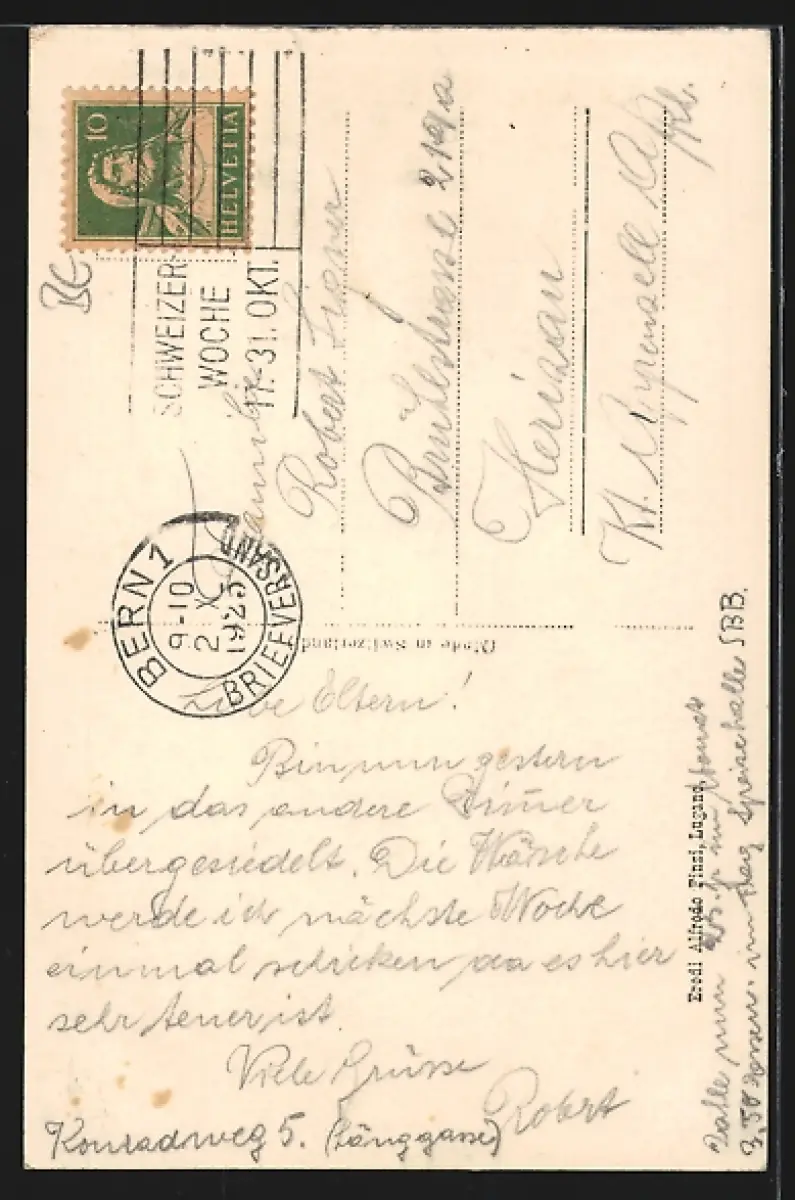 10
HELVETIA
SCHWEIZER-
WOCHE
17.-31. OKT.
BERN 1
9-10
2. X.
1926
BRIEFVERSAND
Familie
Robert
Brühlstrasse 214a
Herisau
Kt. Appenzell A/Rh.
Made in Switzerland
Liebe Eltern!
Bin nun gestern
in das andere Zimmer
übergesiedelt. Die Wäsche
werde ich nächste Woche
einmal schicken da es hier
sehr teuer ist.
Viele Grüsse
Robert
Konradweg 5. (Länggasse)
Eredi Alfredo Finzi, Lugano.
Zalle nun 25.- im Monat
3,50 Essen. im Tag Speisehalle SBB.